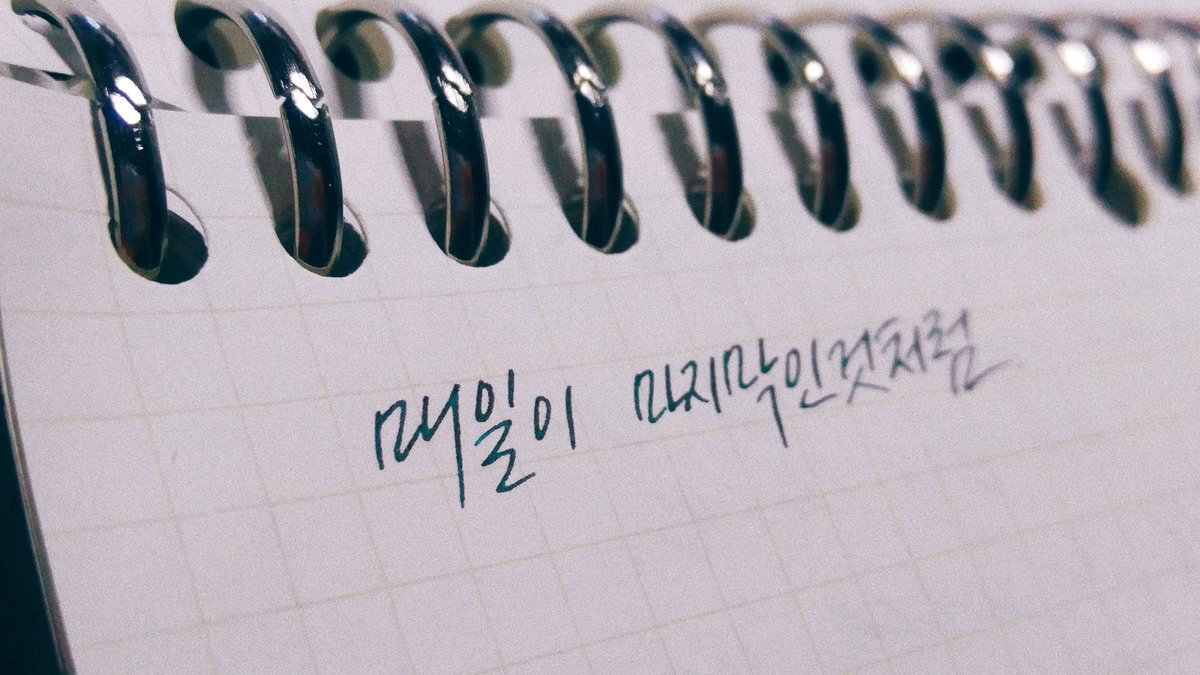 매일이 마지막인것처럼